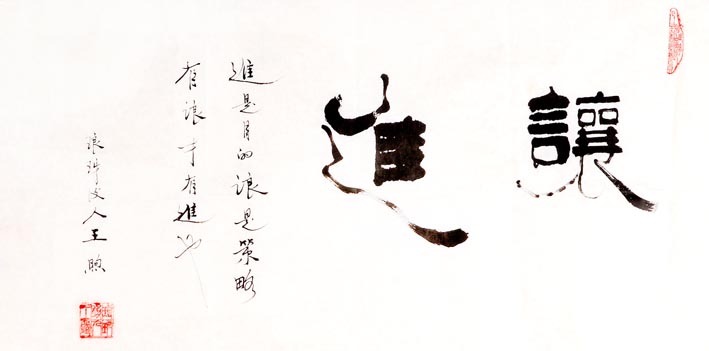 讓進
進是目的讓是策略
有讓才有進也
人王煦